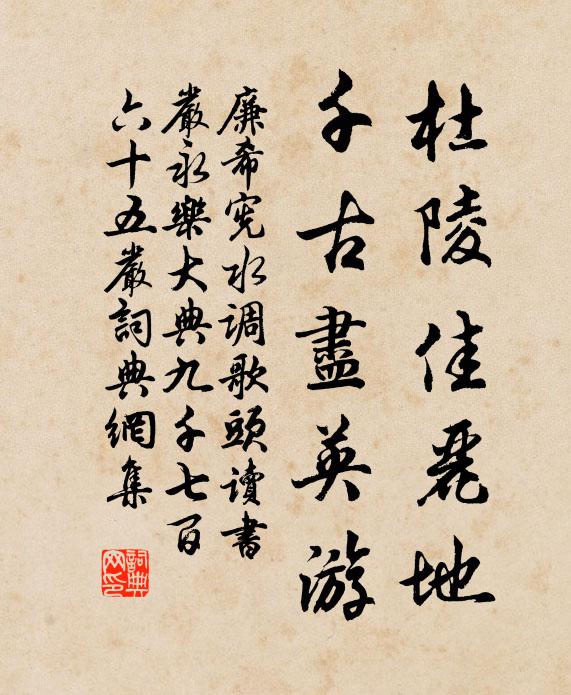 杜陵佳麗地
千古盡英游
廉希憲水调歌頭讀書
嚴永樂大典九千七百
六十五嚴詞典網集
詞典
网印